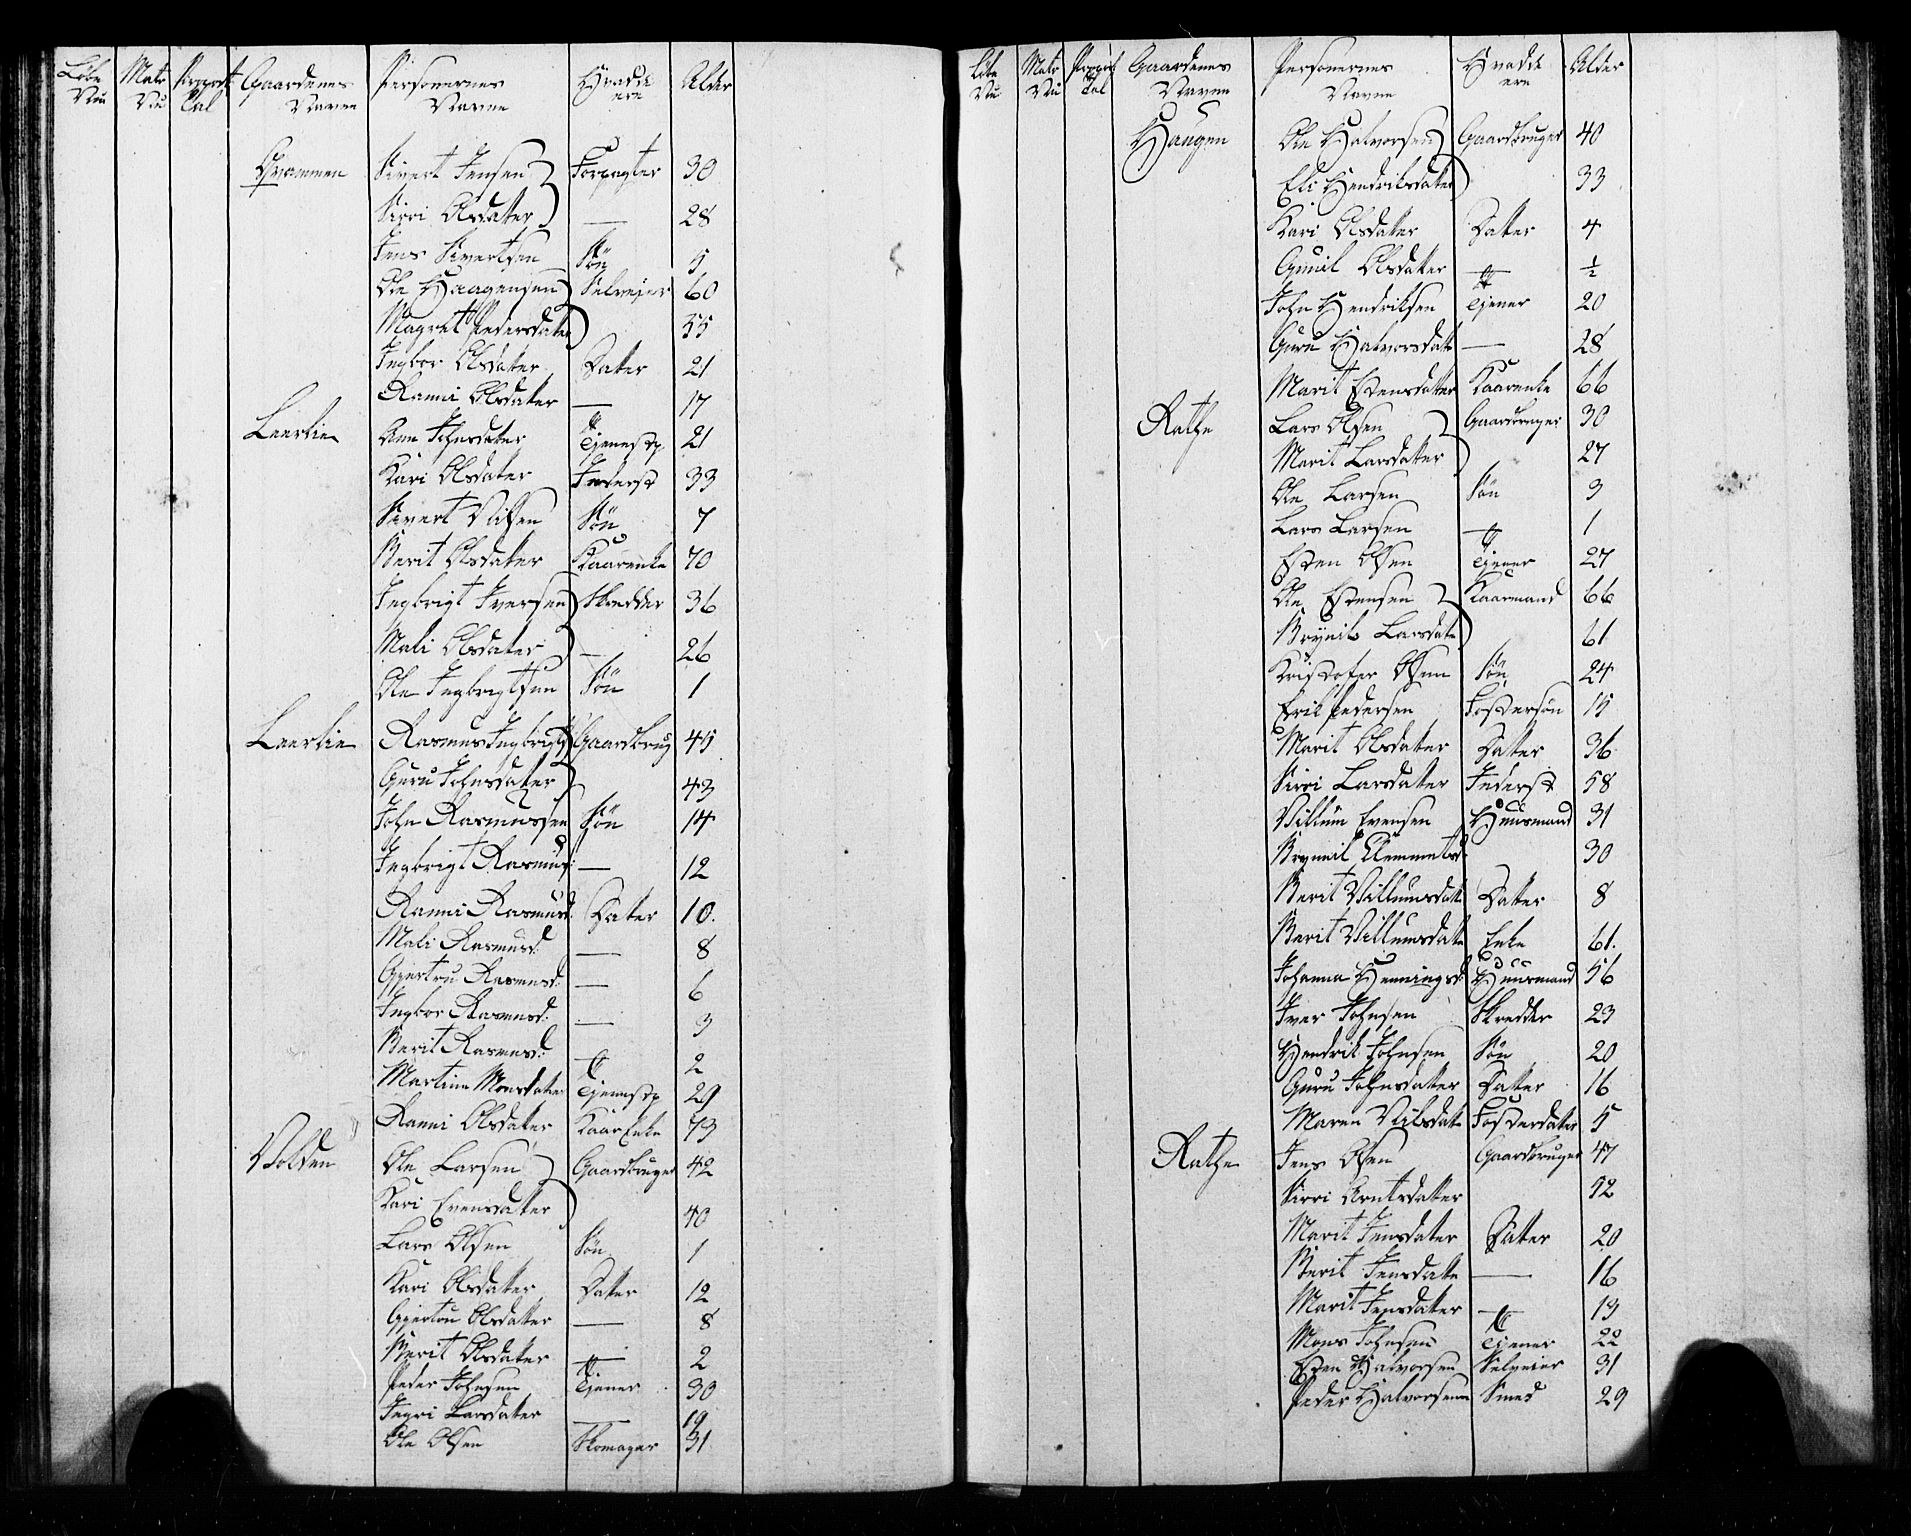 Löbe Matr Proport Gaardenes Personernes Hvad de Alder
Nu Nu Tal Navne Navne ere
Qvammen Sivert Jensen Forpagter 30
Sirri Olsdatter — 28
Jens Sivertsen Sön 5
Ole Haagensen Selveier 60
Magret Pedersdatter 55
Ingbor Olsdatter Datter 21
Ranni Olsdatter — 17
Leerlie Ane Johnsdatter Tjenestp 21
Kari Olsdatter Inderst 33
Sivert Nilsen Sön 7
Berit Olsdatter Kaarenke 70
Ingbrigt Iversen Skredder 36
Mali Olsdatter — 26
Ole Ingbrigtsen Sön 1
Leerlie Rasmus Ingbrigts Gaardbrug 45
Guru Johnsdatter 43
John Rasmussen Sön 14
Ingbrigt Rasmus: — 12
Ranni Rasmusd: Datter 10.
Mali Rasmusd: — 8
Gjertru Rasmusd: — 6
Ingbor Rasmusd: — 3
Berit Rasmusd: — 2
Martine Monsdatter Tjenestp 29
Ranni Olsdatter KaarEnke 73
Volden Ole Larsen Gaardbruger 42
Kari Evensdatter 40
Lars Olsen Sön 1
Kari Olsdatter Datter 12
Gjertru Olsdatter — 8
Berit Olsdatter — 2
Peder Johnsen Tjener 30
Ingri Larsdatter — 19
Ole Olsen Skomager 31
Löbe Matr Proport Gaardenes Personernes Hvad de Alder
Nu Nu Tal Navne Navne ere
Haugen Ole Halvorsen Gaardbruger 40
Eli Hendriksdatter 33
Kari Olsdatter Datter 4
Gunil Olsdatter — ½
John Hendriksen Tjener 20
Guru Halvorsdatt — 28
Marit Estensdatter Kaarenke 66
Rathe Lars Olsen Gaardbruger 30
Marit Larsdatter 27
Ole Larsen Sön 3
Lars Larsen — 1
Esten Olsen Tjener 27
Ole Estensen Kaarmand 66
Brynil Larsdate 61
Kristofer Olsen Sön 24
Eril Pedersen Fostersön 15
Marit Olsdatter Datter 36
Sirri Larsdatter Inderst 58
Villum Evensen Huusmand 31
Brynnil Clemmetsd: 30
Berit Villumsdatt Datter 8
Berit Villumsdatte Enke 61.
Johanna Henningsd: Huusmand 56
Iver Johnsen Skredder 23
Hendrik Johnsen Sön 20
Guru Johnsdatter Datter 16
Maren Nilsdatt Fosterdatter 5
Rathe Jens Olsen Gaardbruger 47
Sirri Arntsdatter 52
Marit Jensdatter Datter 20
Berit Jensdatte — 16
Marit Jensdatter — 13
Mons Johnsen Tjener 22
Esten Halvorsen Selveier 31
Peder Halvorsenn Smed 29